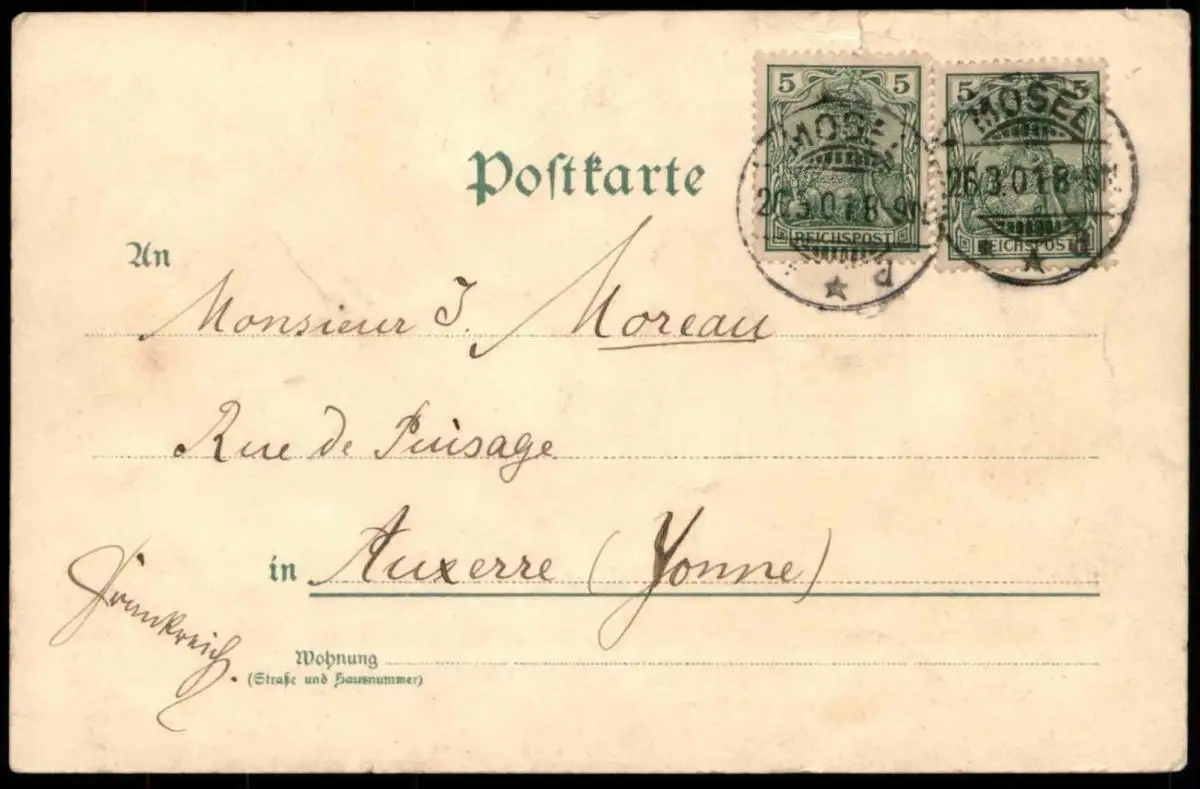 5 5
REICHSPOST
5 5
REICHSPOST
MOSEL
26.3.01.8-9N.
MOSEL
26.3.01.8-9N.
Postkarte
An
Monsieur J. Moreau
Rue de Puisage
in Auxerre (Yonne)
Frankreich.
Wohnung
(Straße und Hausnummer)